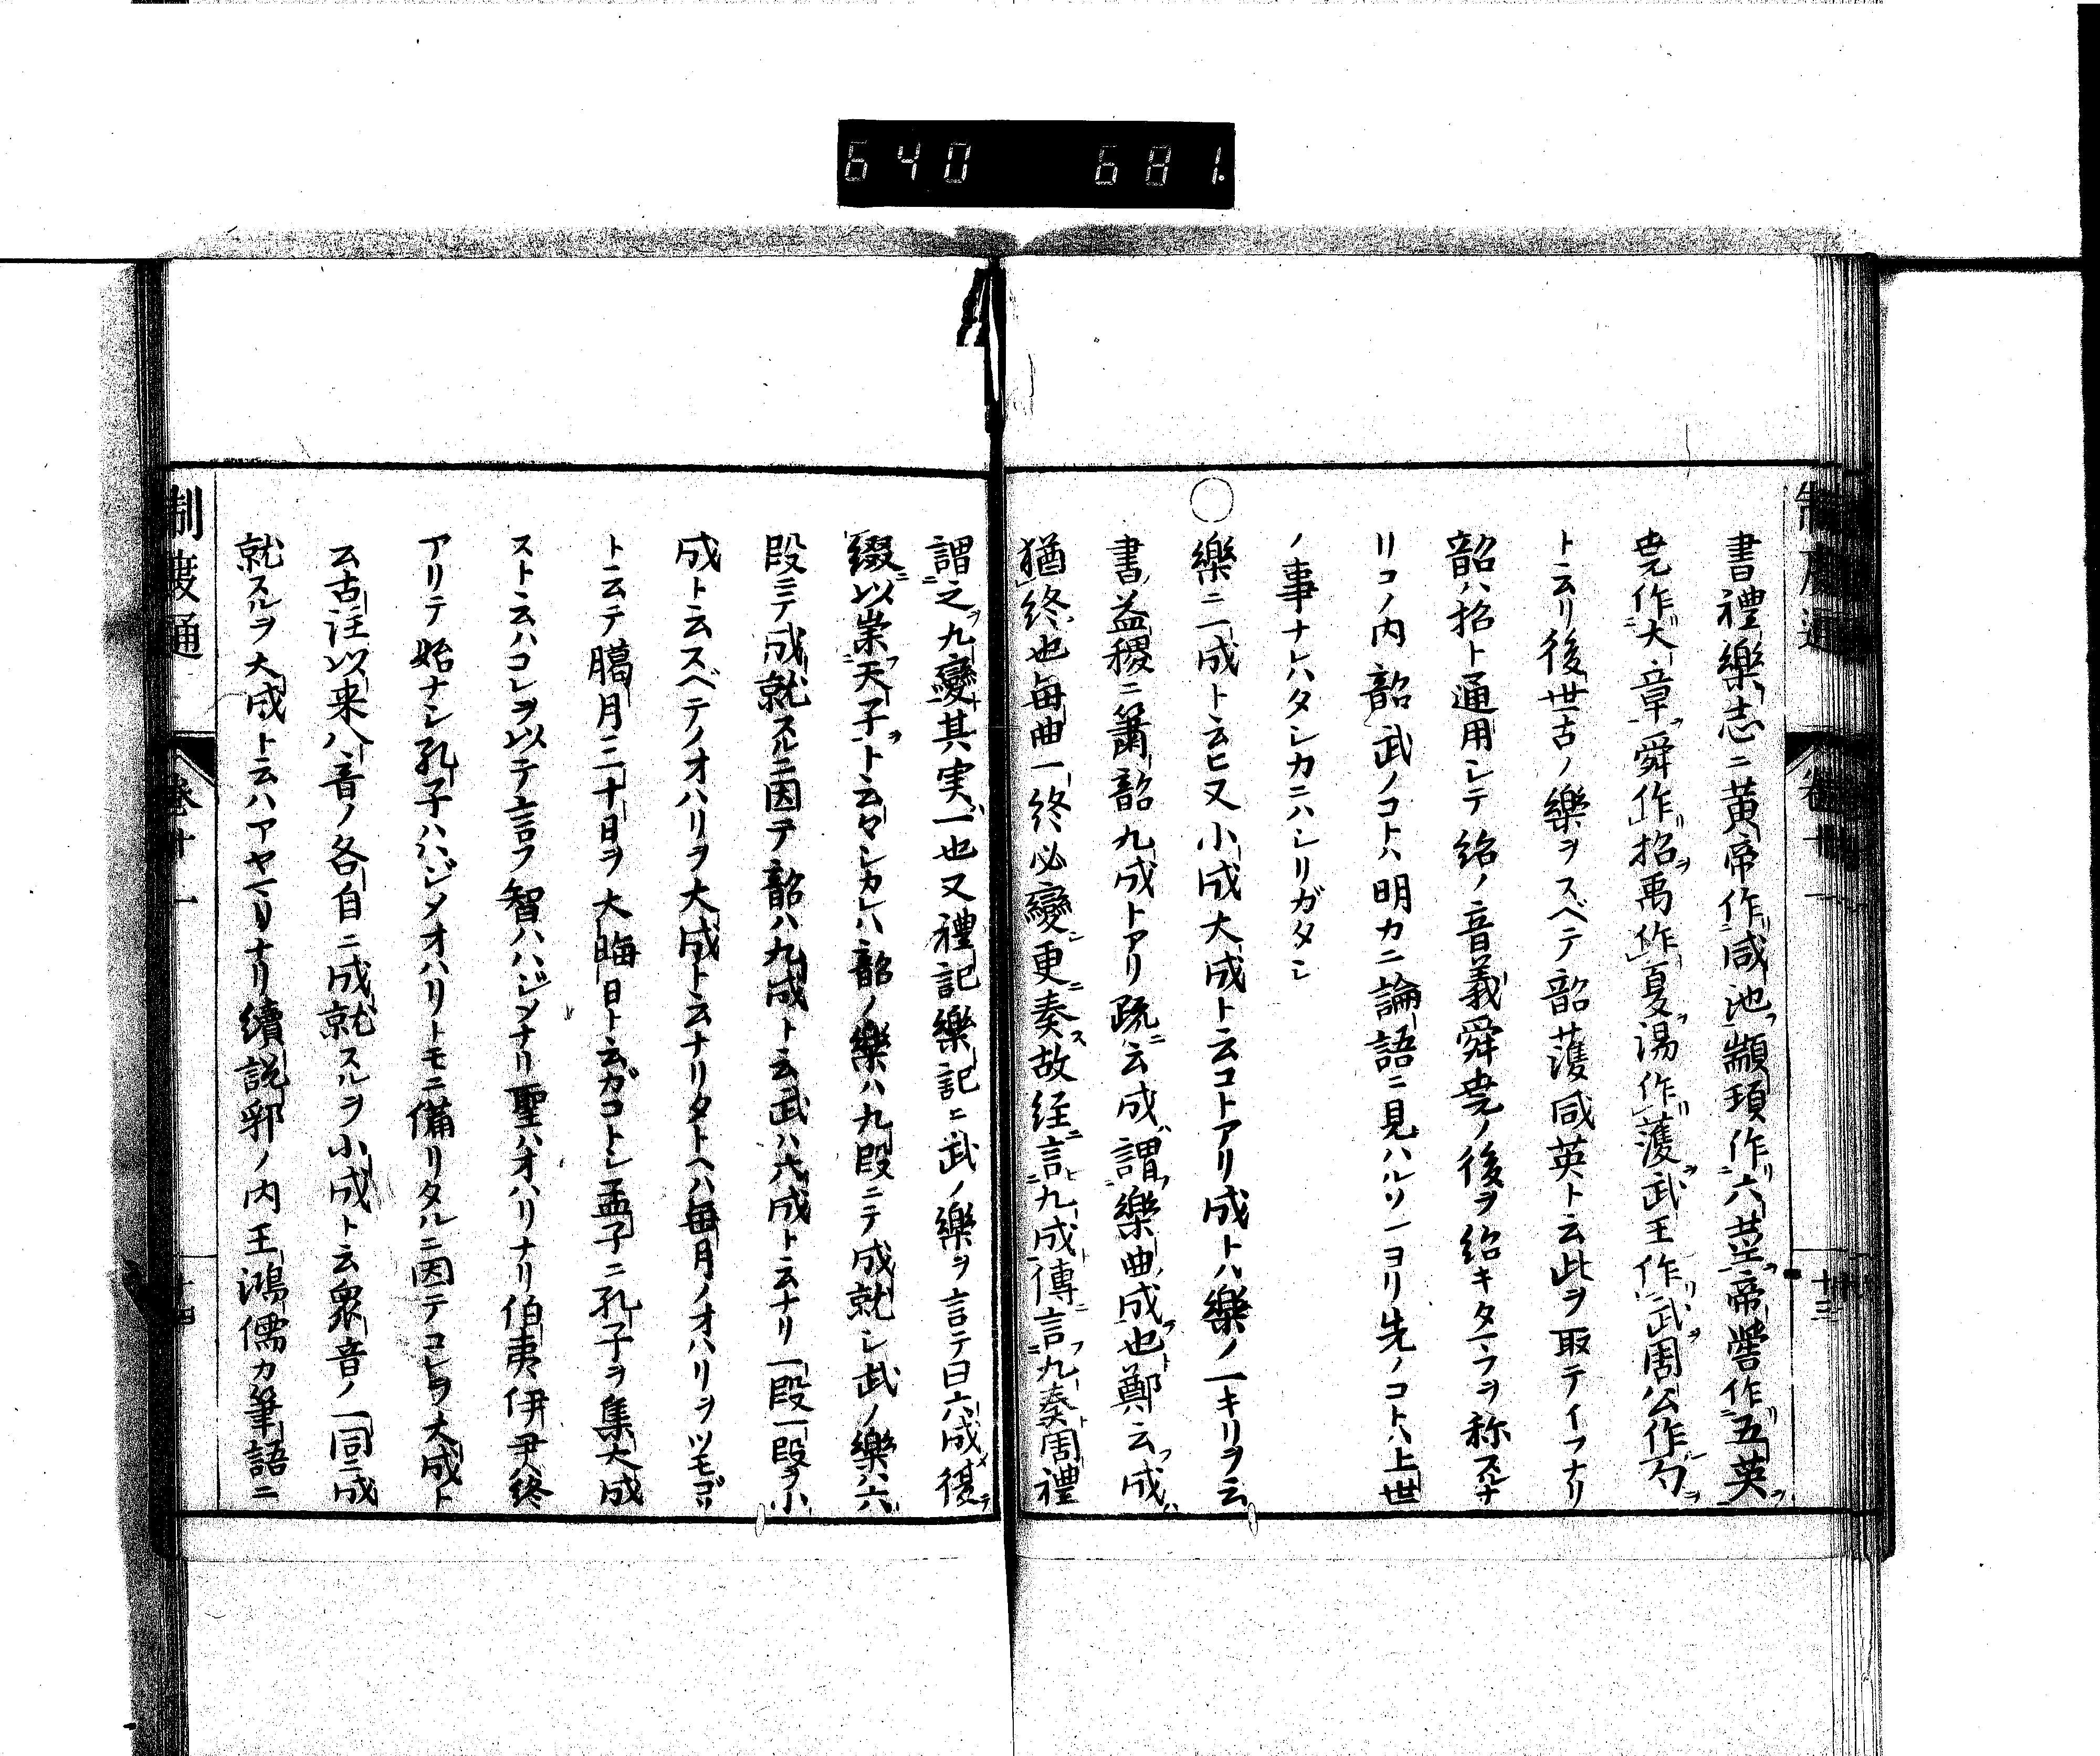 640 681.
制度通 卷十一 十三
書禮樂志ニ黄帝作咸池顓頊作六莖帝嚳作五英
堯作大章舜作招禹作夏湯作濩武王作武周公作勺
ト云リ後世古ノ樂ヲスベテ韶濩咸英ト云此ヲ取テイフナリ
韶ハ招ト通用シテ紹ノ音義舜堯ノ後ヲ紹キタマフヲ称スルナ
リコノ内韶武ノコトハ明カニ論語ニ見ハルソ一ヨリ先ノコトハ上世
ノ事ナレハタシカニハシリガタシ
○樂ニ一成ト云ヒ又小成大成ト云コトアリ成トハ樂ノ一キリヲ云
書益稷ニ簫韶九成トアリ疏云成謂樂曲成也鄭云成
猶終也毎曲一終必變更奏故経言九成傳言九奏周禮
謂之九變其実一也又禮記樂記ニ武ノ樂ヲ言テ曰六成復
綴以崇天子ト云々シカレハ韶ノ樂ハ九段ニテ成就シ武ノ樂ハ六
段ニテ成就スルニ因テ韶ハ九成ト云武ハ六成ト云ナリ一段一段ヲ小
成ト云スベテノオハリヲ大成ト云ナリタトヘハ毎月ノオハリヲツモゴリ
ト云テ臈月三十日ヲ大晦日ト云ガコトシ孟子ニ孔子ヲ集大成
ストニ云ハコレヲ以テ言フ智ハハジメナリ聖ハオハリナリ伯夷伊尹終
アリテ始ナシ孔子ハハジメオハリトモニ備リタルニ因テコレヲ大成ト
云古注以来八音ノ各自ニ成就スルヲ小成ト云衆音ノ一同ニ成
就スルヲ大成ト云ハアヤマリナリ續説郛ノ内王鴻儒カ筆語ニ
制度通 卷十一 十四